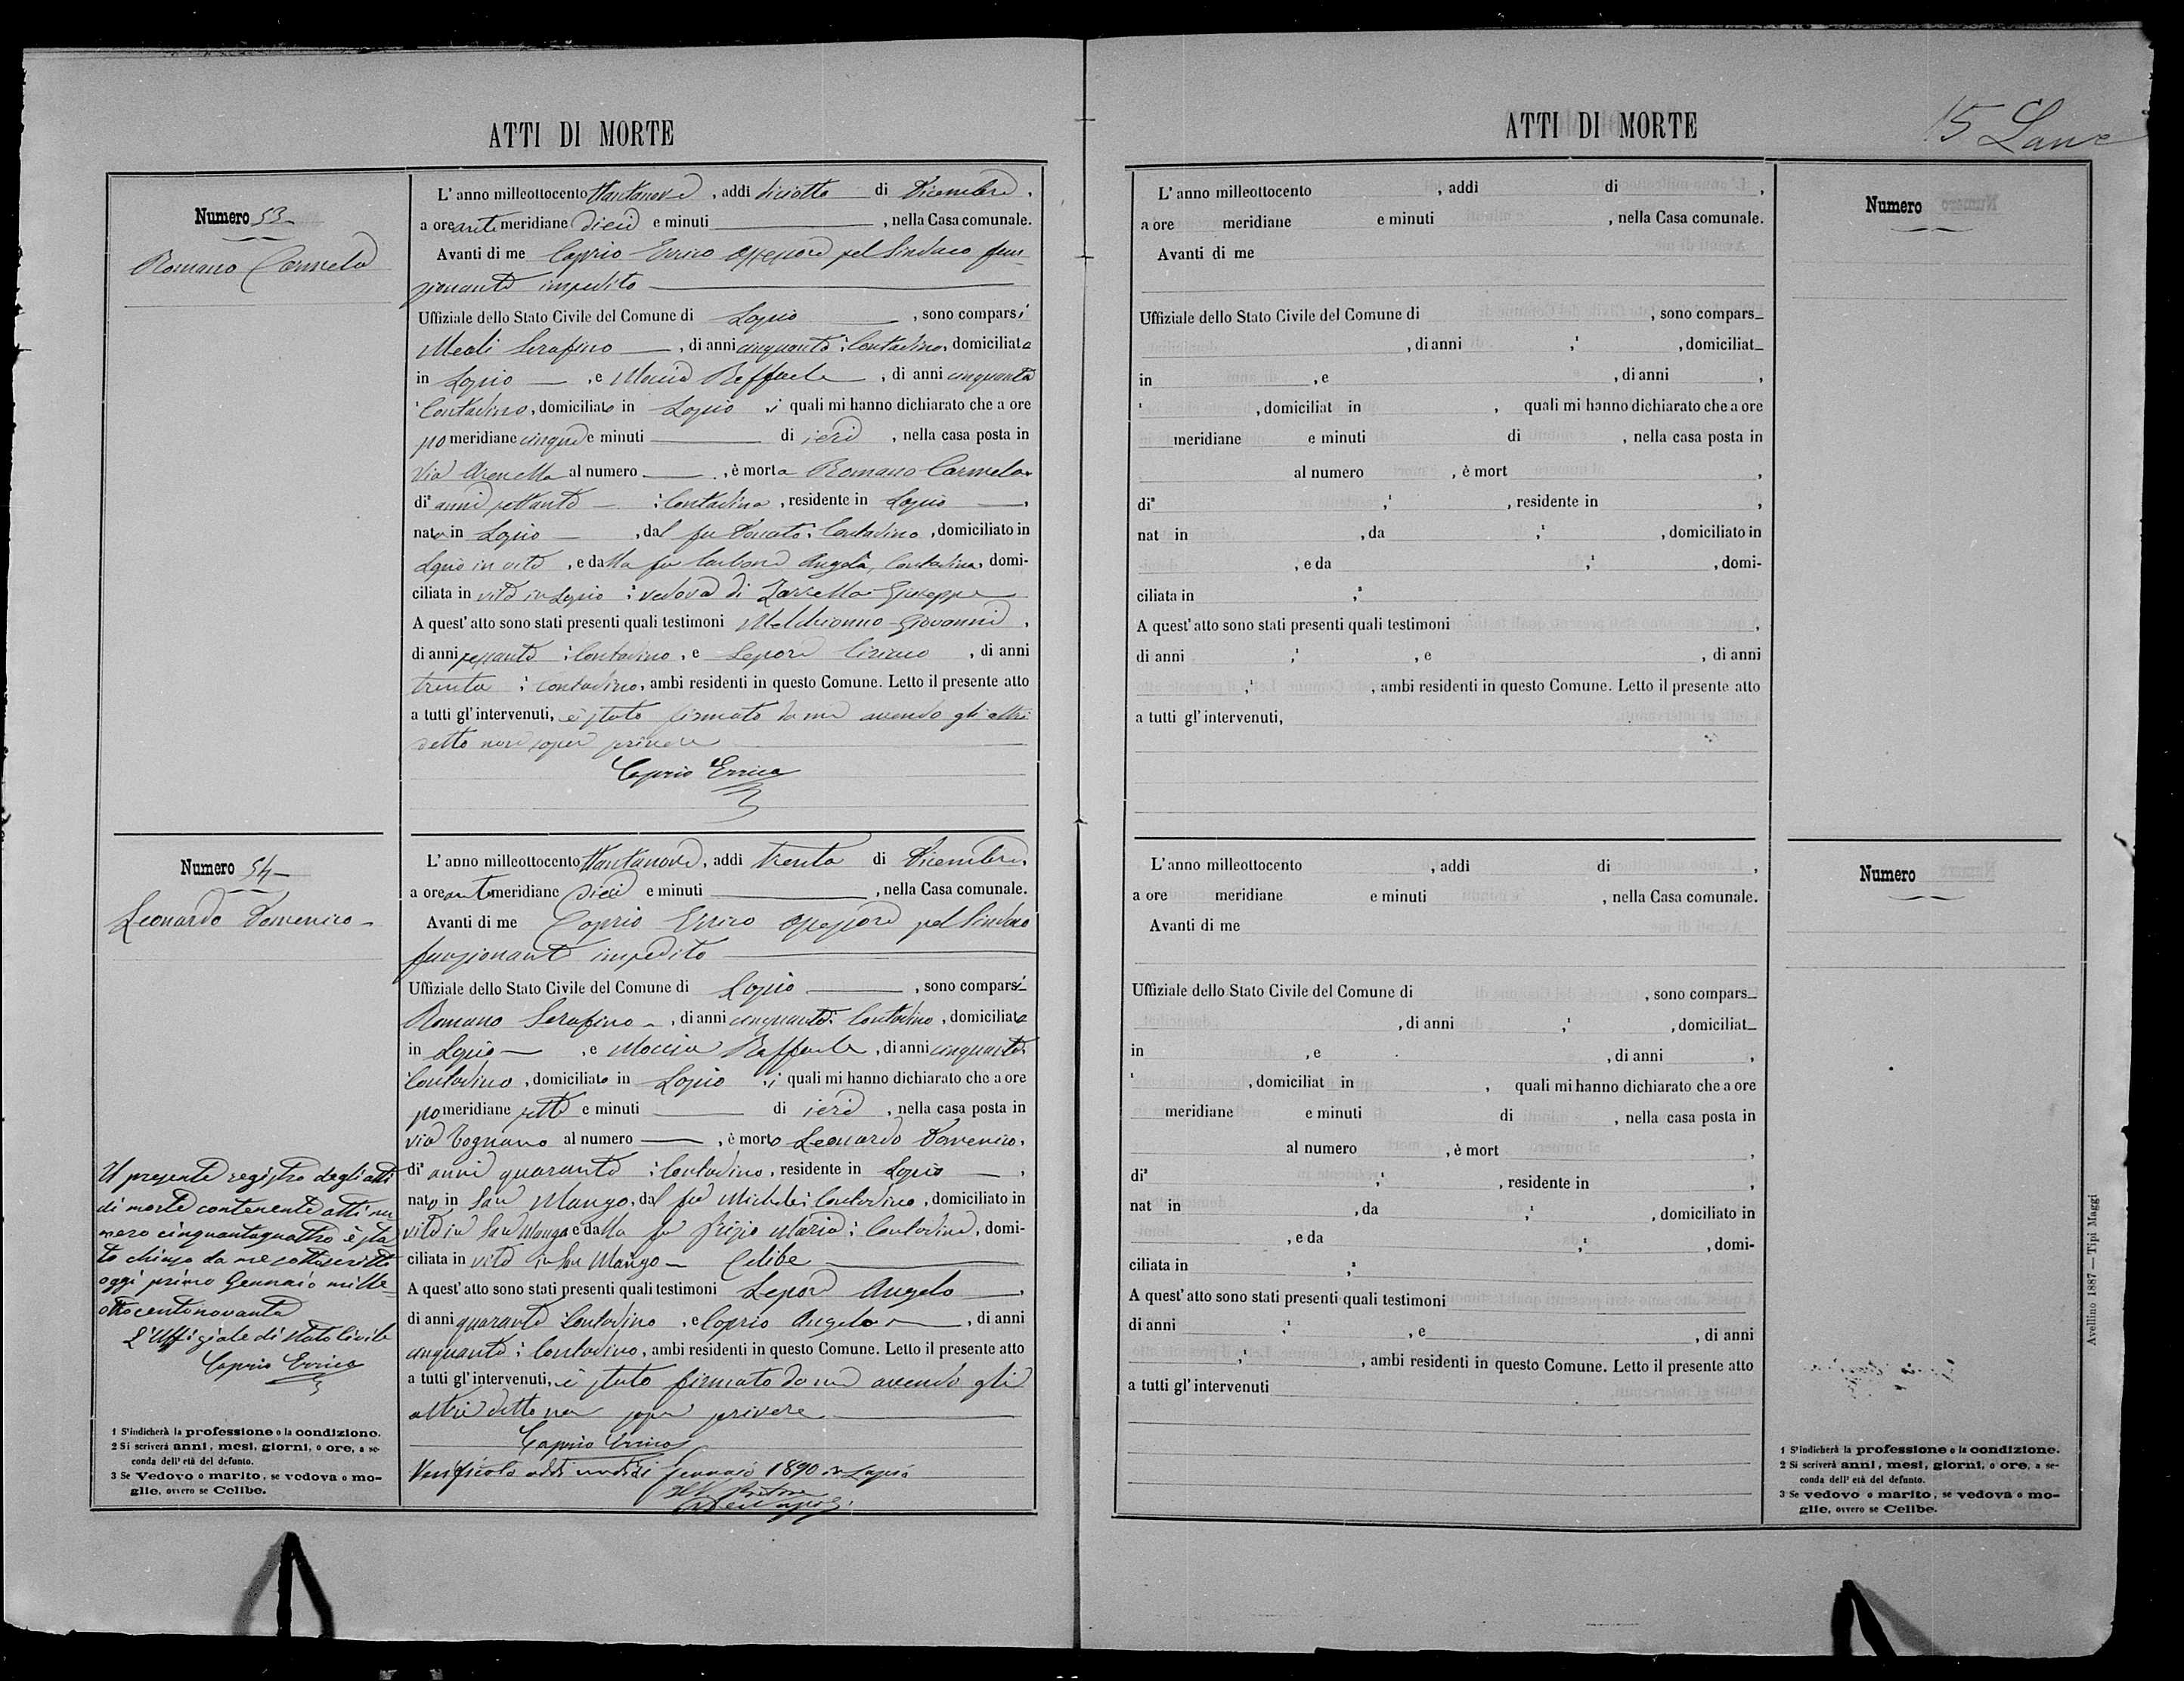 ATTI DI MORTE
Numero 53
Romano Carmela
L' anno milleottocento ottantanove, addi diciotto di Dicembre,
a ore antimeridiane dieci e minuti , nella Casa comunale.
Avanti di me Caprio Errico Assessore pel Sindaco fun
zionante impedito
Uffiziale dello Stato Civile del Comune di Lapio , sono comparsi
Meoli Serafino , di anni cinquanta ; Contadino, domiciliato
in Lapio , e Moccia Raffaele , di anni cinquanta
Contadino, domiciliato in Lapio , i quali mi hanno dichiarato che a ore
pomeridiane cinque e minuti di ieri , nella casa posta in
Via Arenella al numero , è morta Romano Carmela
di² anni settanta ; Contadina, residente in Lapio ,
nata in Lapio , dal fu Donato ; Contadino, domiciliato in
Lapio in vita , e dalla fu Carbone Angela, Contadina, domi-
ciliata in vita in Lapio ; vedova di Zarrella Giuseppe
A quest' atto sono stati presenti quali testimoni Melchionno Giovanni ,
di anni sessanta ; Contadino, e Lepore Ciriaco , di anni
trenta ; contadino, ambi residenti in questo Comune. Letto il presente atto
a tutti gl' intervenuti, è stato firmato da me avendo gli altri
detto non saper scrivere
Caprio Errico
Numero 54
Leonardo Domenico
L' anno milleottocento ottantanove, addi trenta di Dicembre,
a ore antimeridiane dieci e minuti , nella Casa comunale.
Avanti di me Caprio Errico Assessore pel Sindaco
funzionante impedito
Uffiziale dello Stato Civile del Comune di Lapio , sono comparsi
Romano Serafino , di anni cinquanta ; Contadino, domiciliato
in Lapio , e Moccia Raffaele , di anni cinquanta
Contadino, domiciliato in Lapio , i quali mi hanno dichiarato che a ore
pomeridiane sette e minuti di ieri , nella casa posta in
via Tognano al numero , è morto Leonardo Domenico,
di² anni quaranta ; Contadino, residente in Lapio ,
nato in San Mango, dal fu Michele ; Contadino, domiciliato in
vita in San Mango e dalla fu Frizio Maria ; Contadina, domi-
ciliata in vita in San Mango Celibe
A quest' atto sono stati presenti quali testimoni Lepore Angelo ,
di anni quaranta Contadino, e Caprio Angelo , di anni
cinquanta ; Contadino, ambi residenti in questo Comune. Letto il presente atto
a tutti gl' intervenuti, è stato firmato da me avendo gli
altri detto non saper scrivere
Caprio Errico
Verificato addì undici Gennaio 1890 in Lapio
Il Pretore
Il presente registro degli atti
di morte contenente atti nu
mero cinquantaquattro è sta
to chiuso da me sottoscritto
oggi primo Gennaio mille
ottocentonovanta
L'Uffiziale di Stato Civile
Caprio Errico
1 S'indicherà la professione o la condizione.
2 Si scriverà anni, mesi, giorni, o ore, a se-
conda dell' età del defunto.
3 Se Vedovo o marito, se vedova o mo-
glie, ovvero se Celibe.
ATTI DI MORTE
15
L' anno milleottocento , addi di ,
a ore meridiane e minuti , nella Casa comunale.
Avanti di me
Uffiziale dello Stato Civile del Comune di , sono compars
, di anni ;¹ , domiciliat
in , e , di anni ,
¹ , domiciliat in , quali mi hanno dichiarato che a ore
meridiane e minuti di , nella casa posta in
al numero , è mort ,
di² ;¹ , residente in ,
nat in , da ;¹ , domiciliato in
, e da ;¹ , domi-
ciliata in ;³
A quest' atto sono stati presenti quali testimoni ,
di anni ;¹ , e , di anni
;¹ , ambi residenti in questo Comune. Letto il presente atto
a tutti gl' intervenuti,
Numero
L' anno milleottocento , addi di ,
a ore meridiane e minuti , nella Casa comunale.
Avanti di me
Uffiziale dello Stato Civile del Comune di , sono compars
, di anni ;¹ , domiciliat
in , e , di anni ,
¹ , domiciliat in , quali mi hanno dichiarato che a ore
meridiane e minuti di , nella casa posta in
al numero , è mort ,
di² ;¹ , residente in ,
nat in , da ;¹ , domiciliato in
, e da ;¹ , domi-
ciliata in ;³
A quest' atto sono stati presenti quali testimoni
di anni ;¹ , e , di anni
;¹ , ambi residenti in questo Comune. Letto il presente atto
a tutti gl' intervenuti
Numero
1 S'indicherà la professione o la condizione.
2 Si scriverà anni, mesi, giorni, o ore, a se-
conda dell' età del defunto.
3 Se vedovo o marito, se vedova o mo-
glie, ovvero se Celibe.
Avellino 1887 — Tipi Maggi